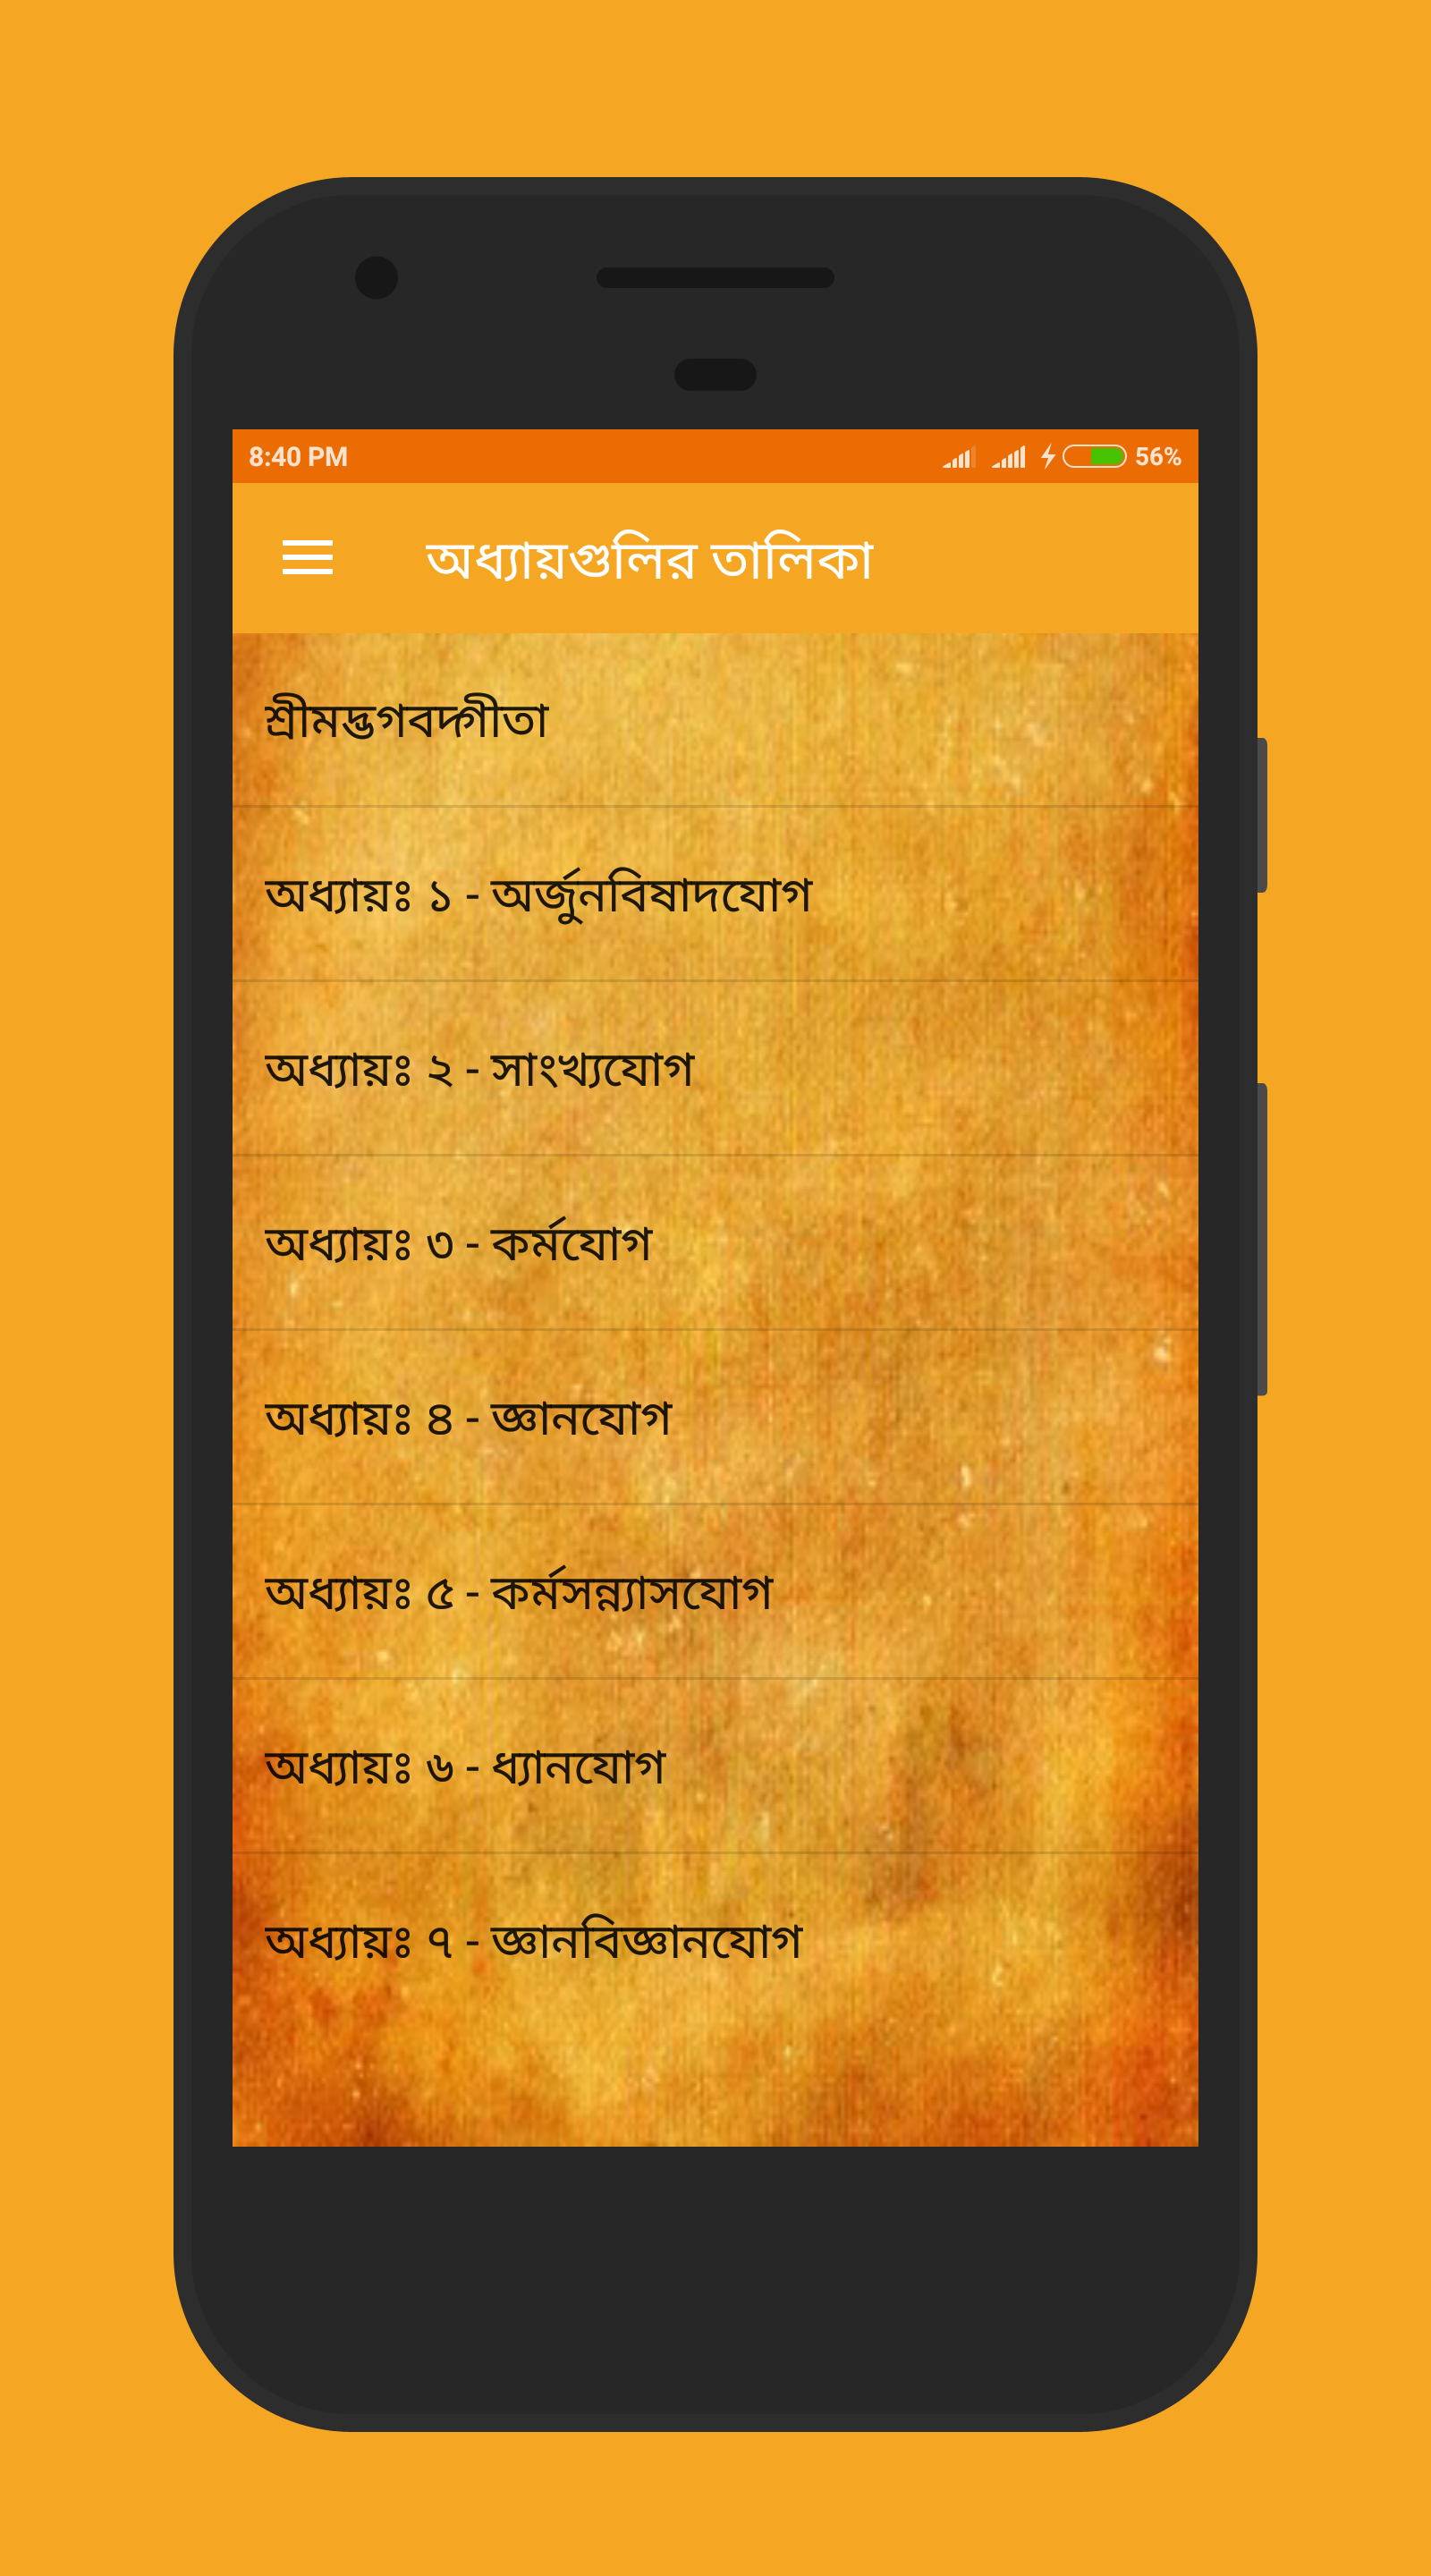 8:40 PM 56%
অধ্যায়গুলির তালিকা
শ্রীমদ্ভগবদ্গীতা
অধ্যায়ঃ ১ - অর্জুনবিষাদযোগ
অধ্যায়ঃ ২ - সাংখ্যযোগ
অধ্যায়ঃ ৩ - কর্মযোগ
অধ্যায়ঃ ৪ - জ্ঞানযোগ
অধ্যায়ঃ ৫ - কর্মসন্ন্যাসযোগ
অধ্যায়ঃ ৬ - ধ্যানযোগ
অধ্যায়ঃ ৭ - জ্ঞানবিজ্ঞানযোগ